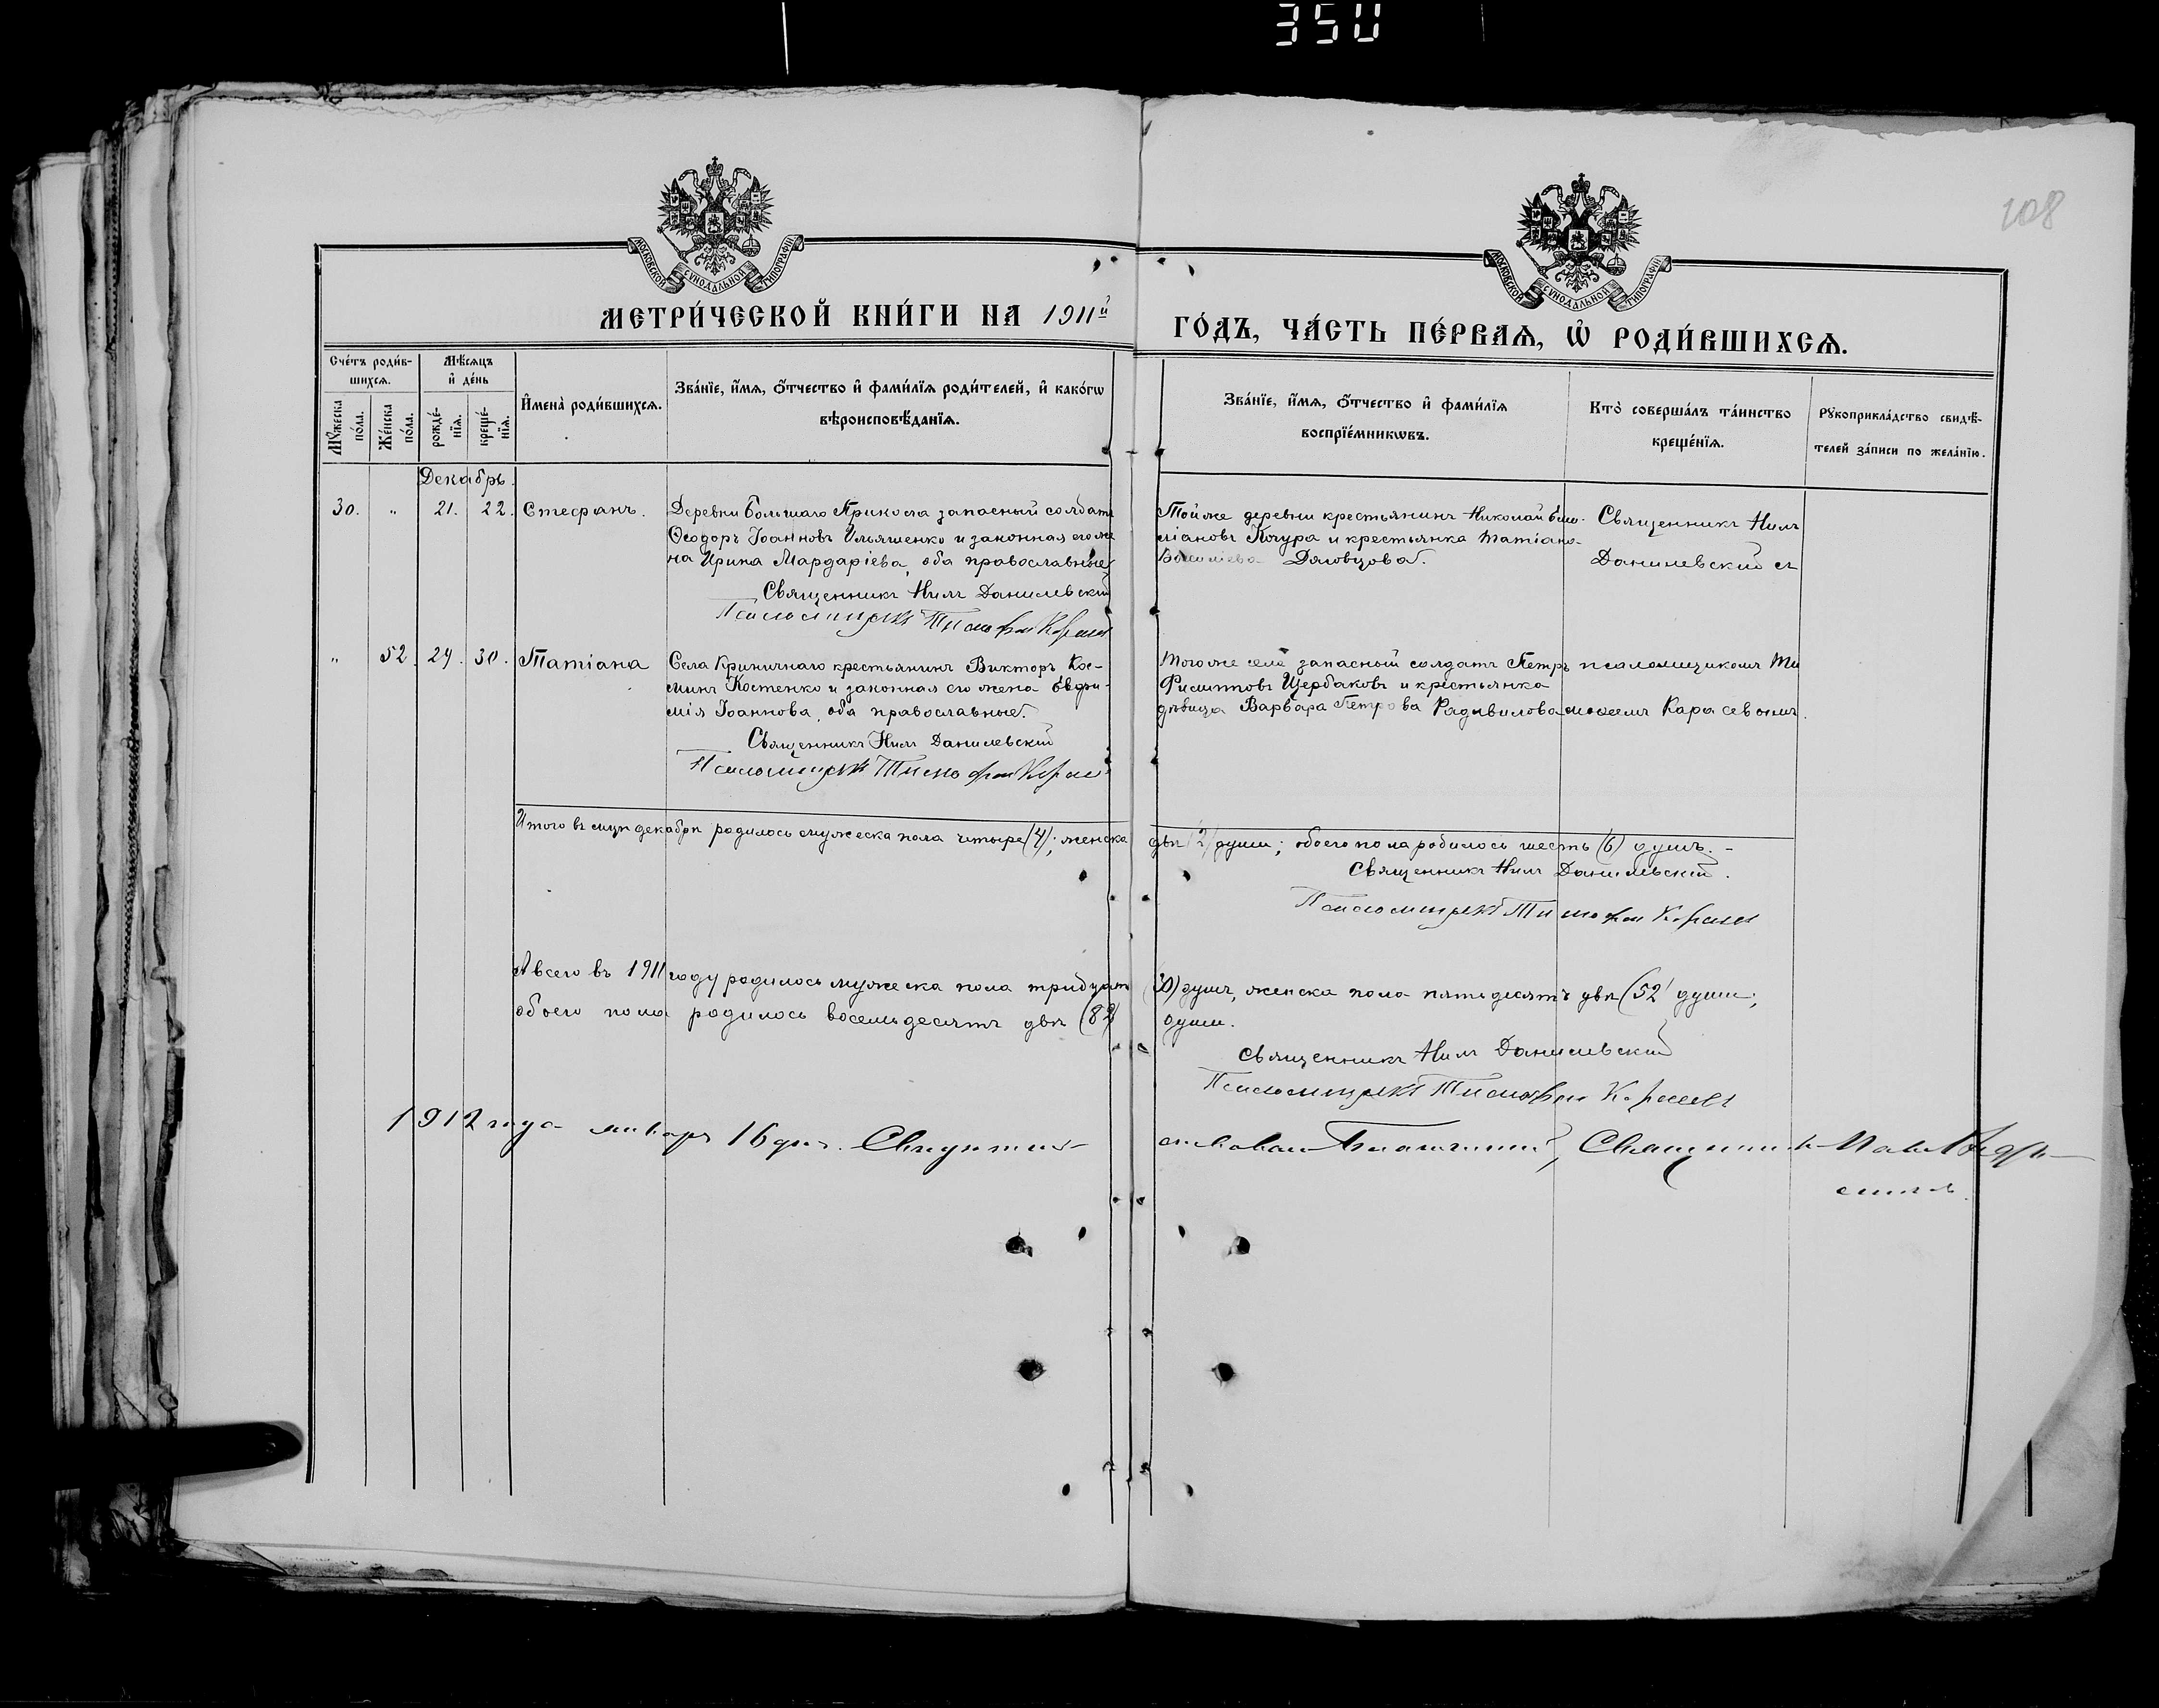 350
108
МОСКОВСКОЙ СУНОДАЛЬНОЙ ТИПОГРАФІИ
МОСКОВСКОЙ СУНОДАЛЬНОЙ ТИПОГРАФІИ
МЕТРИ́ЧЕСКОЙ КНИ́ГИ НА 1911й ГО́ДЪ, ЧА́СТЬ ПЕ́РВАѦ, Ѡ҆ РОДИ́ВШИХСѦ.
Сче́тъ роди́в-
шихсѧ.
Мꙋ́жеска по́ла.
Же́нска по́ла.
Мѣ́сѧцъ
и҆ де́нь
рожде́-
нїѧ.
креще́-
нїѧ.
И҆мена̀ роди́вшихсѧ.
Зва́нїе, и҆́мѧ, ѻ҆́тчество и҆ фами́лїѧ роди́телей, и҆ како́гѡ
вѣроисповѣ́данїѧ.
Зва́нїе, и҆́мѧ, ѻ҆́тчество и҆ фами́лїѧ
воспрїе́мникѡвъ.
Кто̀ соверша́лъ та́инство
креще́нїѧ.
Рꙋкоприкла́дство свидѣ́-
телей за́писи по жела́нїю.
Декабрь.
30. „ 21. 22. Стефанъ.
Деревни Большаго Прикола запасный солдатъ
Ѳеодоръ Іоанновъ Ильяшенко и законная его же
на Ирина Мардаріева, оба православные
Священникъ Нилъ Данилевскій
Псаломщикъ Тимофей Карасев
Той же деревни крестьянинъ Николай
міановъ Кочура и крестьянка Татіана
Васильева
Священникъ Нилъ
Данилевскій съ
„ 52. 29. 30. Татіана
Села Криничнаго крестьянинъ Викторъ Кос-
минъ Костенко и законная его жена Евфи-
мія Іоаннова, оба православные.
Священникъ Нилъ Данилевскій
Псаломщикъ Тимофей Карасев
Того же села запасный солдатъ Петръ
Филипповъ Щербаковъ и крестьянка
дѣвица Варвара Петрова Радивилова
псаломщикомъ Ти
моѳеемъ Карасевымъ.
Итого въ м͠цѣ декабрѣ родилось мужеска пола четыре (4); женска двѣ (2) души; обоего пола родилось шесть (6) душъ. –
Священникъ Нилъ Данилевскій.
Псаломщикъ Тимофей Карасев
А всего въ 1911 году родилось мужеска пола тридцать (30) душъ, женска пола пятьдесятъ двѣ (52) души;
обоего пола родилось восемьдесятъ двѣ (82) души.
Священникъ Нилъ Данилевскій
Псаломщикъ Тимофей Карасев
1912 года января 16 дня. Свидѣтель
ствовал Благочинный, Священникъ